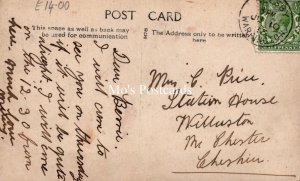 £14-00
POST CARD
This space as well as back may
be used for communication
The Address only to be written
here
Dear Bennie.
I will come to
see you on thursday
if it will be quite
alright. I will
on the 2.3 from
here, much
love
Mrs C. Price
Station House
Williston
Nr Chester
Cheshire
Mo's Postcards